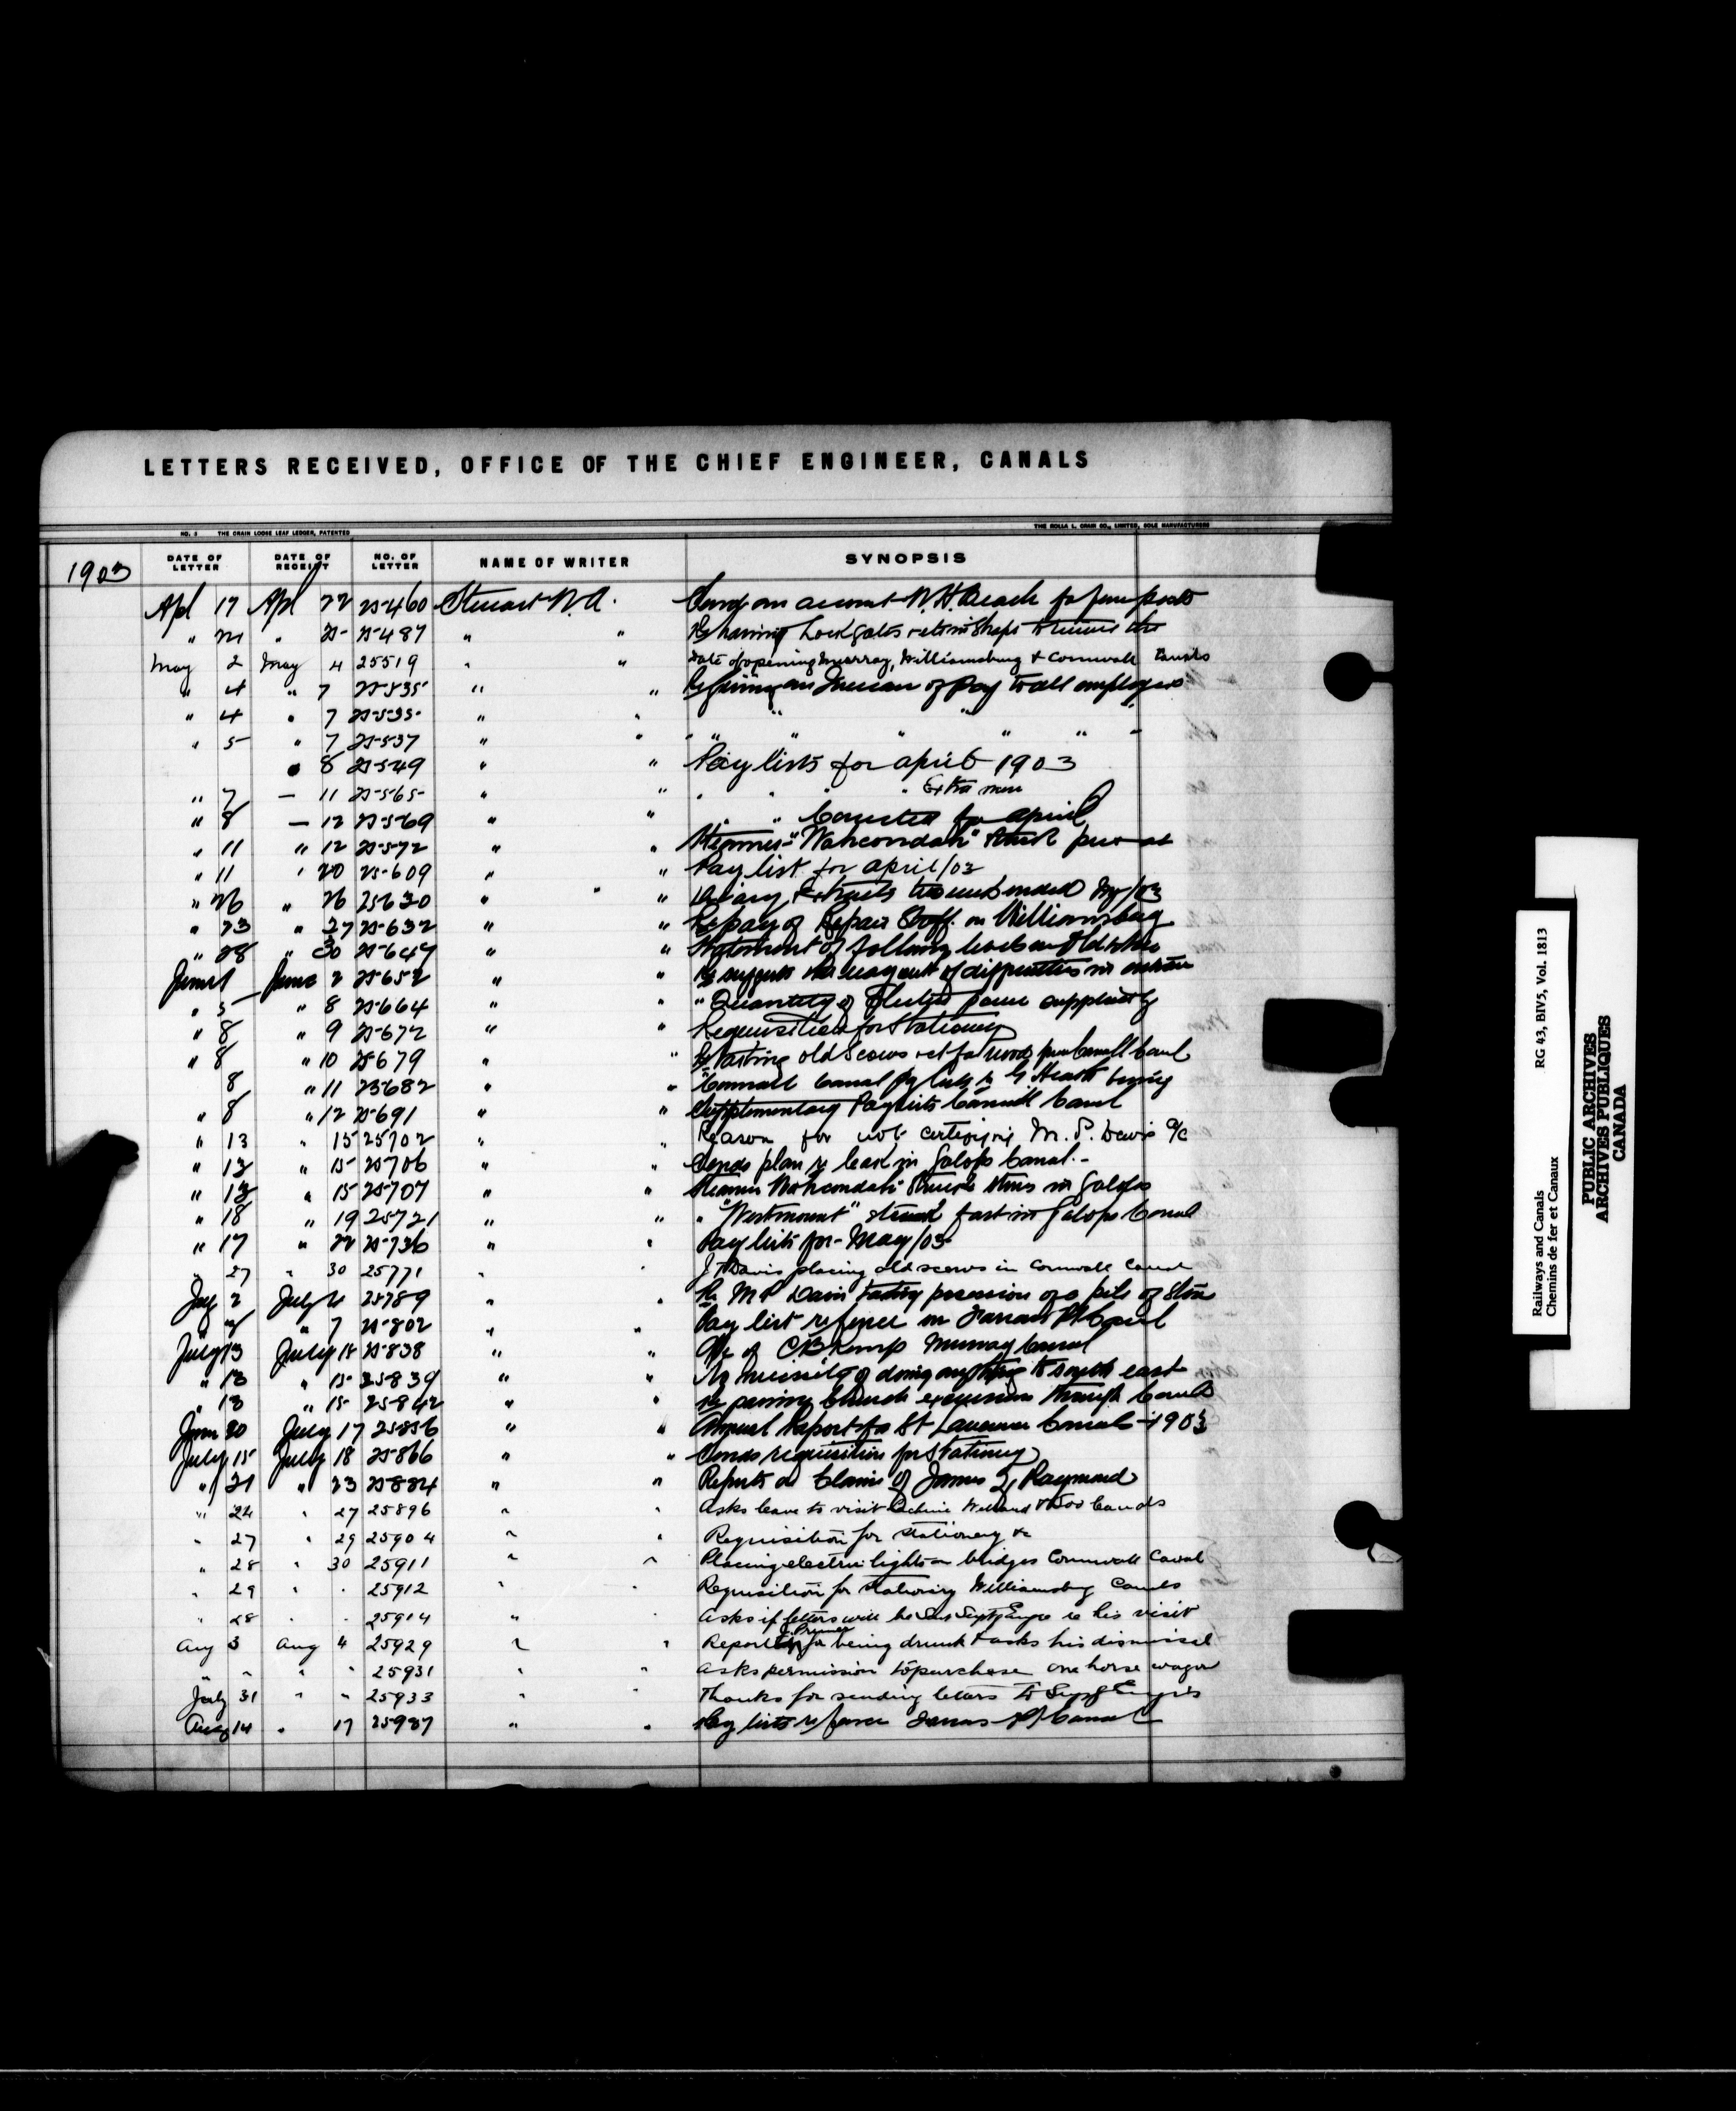 LETTERS RECEIVED, OFFICE OF THE CHIEF ENGINEER, CANALS
NO. 2 THE CRAIN LOOSE LEAF LEDGER, PATENTED THE ROLLA L. CRAIN CO., LIMITED, SOLE MANUFACTURERS
1903 DATE OF LETTER DATE OF RECEIPT NO. OF LETTER NAME OF WRITER SYNOPSIS
Apl 17 Apl 22 25460 Stewart W.A. Sends an account W.H. Beach for posts
" " 25487 " " Re having Lock gates
May 2 May 4 25519 " " Date of opening Murray, Williamsburg & Cornwall Canals
" 4 " 7 25535 " " Re giving an Increase of Pay to all employees
" 4 " 7 25535 " " " " "
" 5 " 7 25537 " " " " " " " "
" 8 25549 " " Pay lists for April 1903
" 7 — 11 25565 " " " " " Extra men
" 8 — 12 25569 " " " " Corrected for April
" 11 " 12 25572 " " Steamer "Wahcondah" struck pier at
" 11 " 20 25609 " " Pay list for April/03
" 26 " 26 25630 " " Diary Extracts ended
" 23 " 27 25632 " " Re pay of Repair Staff on Williamsburg
" 28 " 30 25647 " " Statement of
June 1 June 2 25652 " " Re
" 5 " 8 25664 " " " Quantity of Electric power supplied by
" 8 " 9 25672 " " Requisition for Stationery
" 8 " 10 25679 " " Re old Scows
8 " 11 25682 " " Cornwall Canal
" 8 " 12 25691 " " Supplementary Paylists Cornwall Canal
" 13 " 15 25702 " " Reason for not certifying M. P. Davis a/c
" 13 " 15 25706 " " Sends plan re leak in Galops Canal.-
" 13 " 15 25707 " " Steamer Wahcondah struck in Galops
" 18 " 19 25721 " " " "Westmount" struck fast in Galops Canal
" 17 " 22 25736 " " Pay lists for - May/03
" 27 " 30 25771 " " J. T. Davis placing old scows in Cornwall Canal
July 2 July 4 25789 " " Re M P Davis taking possession of a pile of stone
" " 7 25802 " " Pay list Farrans Pt Canal
July 13 July 15 25838 " " a/c of C B Kemp Murray Canal
" 13 " 15 25839 " " No necessity of doing anything to south east
" 13 " 15 25842 " " Re passing Church excursion through Canal
June 30 July 17 25856 " " Annual Report for St Lawrence Canals - 1903
July 15 July 18 25866 " " Sends requisition for Stationery
" 21 " 23 25884 " " Reports on Claim of James Raymond
" 24 " 27 25896 " " Asks leave to visit Lachine Welland & Soo Canals
" 27 " 29 25904 " " Requisition for stationery &c
" 28 " 30 25911 " " Placing electric lights on bridges Cornwall Canal
" 29 " " 25912 " " Requisition for stationery Williamsburg Canals
" 28 " " 25914 " " Asks if letters will be sent re his visit
Aug 3 Aug 4 25929 " " Reports for being drunk & asks his dismissal
" " " " 25931 " " Asks permission to purchase one horse wagon
July 31 " " 25933 " " Thanks for sending letters to
Aug 14 " 17 25987 " " Pay lists Farrans Pt Canal
Railways and Canals RG 43, BIV5, Vol. 1813
Chemins de fer et Canaux
PUBLIC ARCHIVES
ARCHIVES PUBLIQUES
CANADA